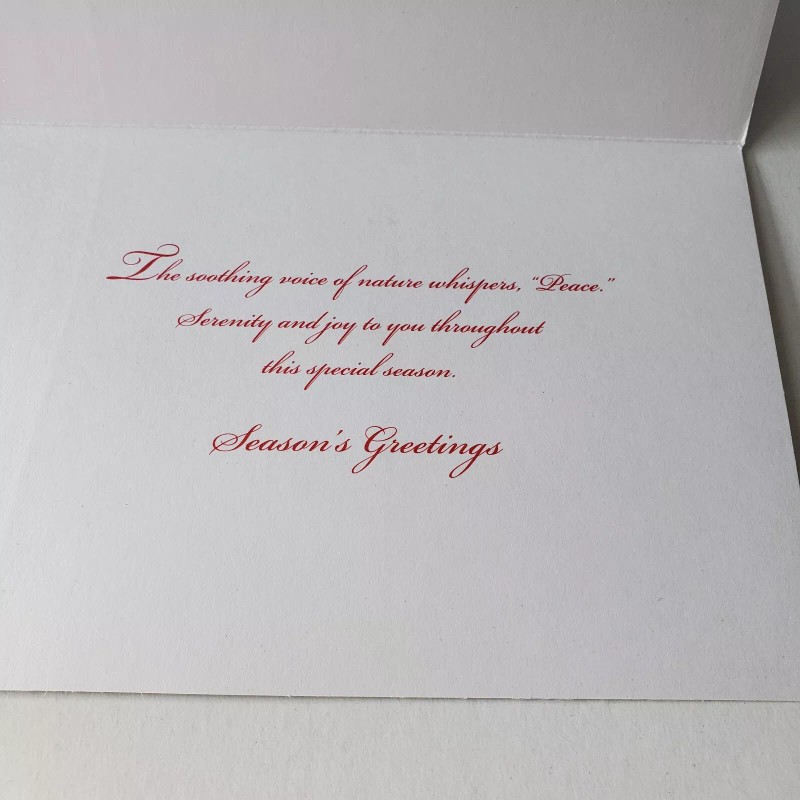 The soothing voice of nature whispers, “Peace.”
Serenity and joy to you throughout
this special season.
Season's Greetings